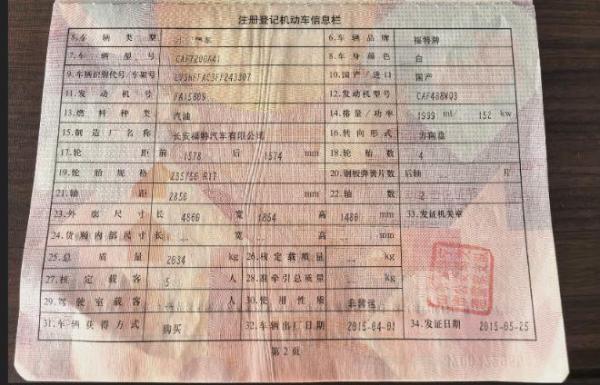 注册登记机动车信息栏
5.车辆类型 6.车辆品牌 福特牌
7.车辆型号 CAF7200A41 8.车身颜色 白
9.车辆识别代号/车架号 10.国产/进口 国产
11.发动机号 FA15809 12.发动机型号 CAF488WQ3
13.燃料种类 汽油 14.排量/功率 1999 ml 152 kw
15.制造厂名称 长安福特汽车有限公司 16.转向形式 方向盘
17.轮距 前 1578 后 1574 mm 18.轮胎数 4
19.轮胎规格 235/50 R17 20.钢板弹簧片数 后轴 片
21.轴距 2850 mm 22.轴数 2
23.外廓尺寸 长 宽 高 mm 33.发证机关章
24.货厢内部尺寸 长 宽 高 mm
25.总质量 kg 26.核定载质量 kg
27.核定载客 5 人 28.准牵引总质量 kg
29.驾驶室载客 人 30.使用性质 非营运
31.车辆获得方式 购买 32.车辆出厂日期 2015-04-01 34.发证日期 2015-05-25
第2页